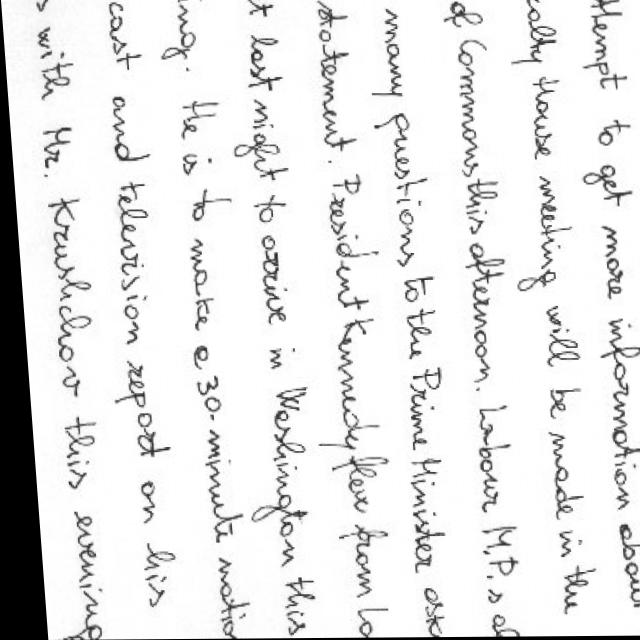 ttempt to get more information abou
ralty House meeting will be made in the
of Commons this afternoon. Labour M.P.s al
many questions to the Prime Minister ask
statement. President Kennedy flew from Lo
t last night to arrive in Washington this
ing. He is to make a 30-minute natio
cast and television report on his
s with Mr. Krushchov this evening